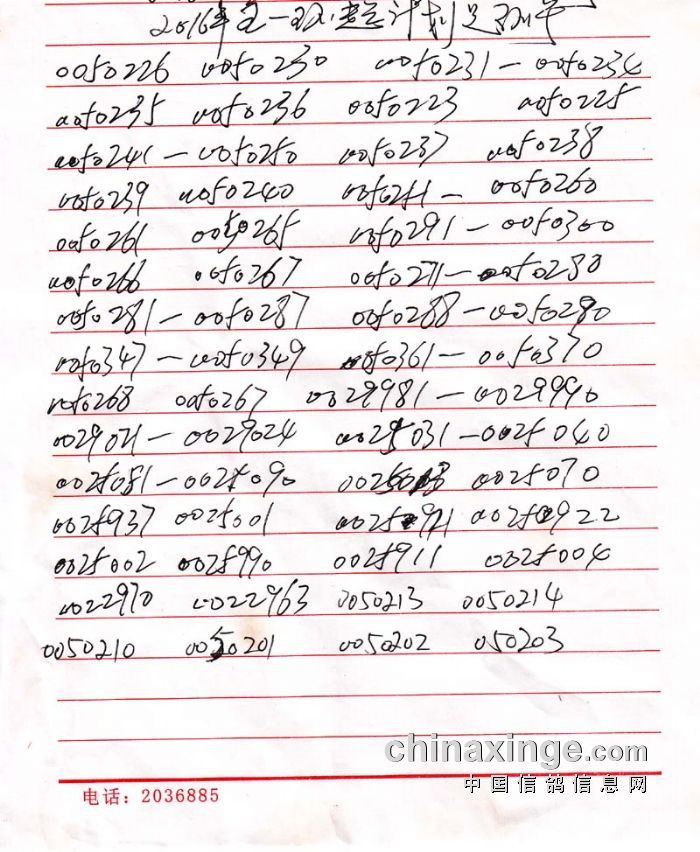 2016年五一
0050226 0050230 0050231 — 0050234
0050235 0050236 0050223 0050225
0050241 — 0050250 0050237 0050238
0050239 0050240 0050251 — 0050260
0050261 0050265 0050291 — 0050300
0050266 0050267 0050271 — 0050280
0050281 — 0050287 0050288 — 0050290
0050347 — 0050349 0050361 — 0050370
0050268 0050267 0029981 — 0029990
0029021 — 0029024 0025031 — 0025040
0025081 — 0025090 0025070
0025937 0025001
0025002 0025990 0025911 0025004
0022970 0022963 0050213 0050214
0050210 0050201 0050202 050203
chinaxinge.com
中国信鸽信息网
电话：2036885